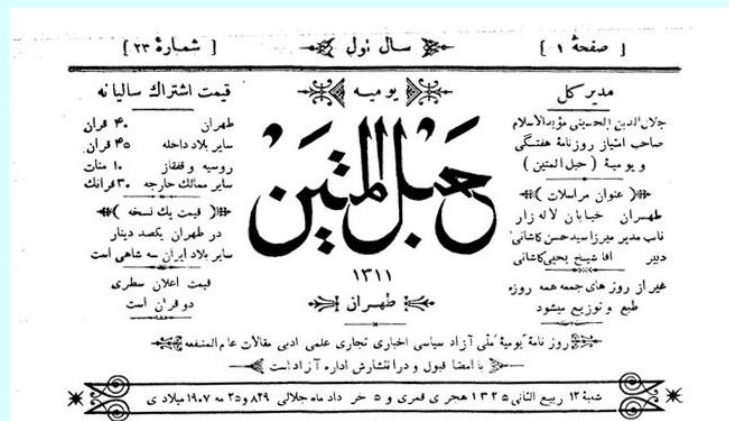 [ صفحهٔ ۱ ]
سال اول
[ شمارهٔ ۲۳ ]
مدیر کل
جلال الدین الحسینی مؤیدالاسلام
صاحب امتیاز روزنامهٔ هفتگی
و یومیهٔ ( حبل المتین )
( عنوان مراسلات )
طهران خیابان لاله زار
نایب مدیر میرزا سید حسن کاشانی
دبیر آقا شیخ یحیی کاشانی
غیر از روز های جمعه همه روزه
طبع و توزیع میشود
یومیه
حبل المتین
۱۳۱۱
طهران
قیمت اشتراك سالیانه
طهران ۴۰ قران
سایر بلاد داخله ۴۵ قران
روسیه و قفقاز ۱۰ منات
سایر ممالك خارجه ۳۰ فرانك
( قیمت یك نسخه )
در طهران یکصد دینار
سایر بلاد ایران سه شاهی است
قیمت اعلان سطری
دو قران است
روزنامهٔ یومیهٔ ملی آزاد سیاسی اخباری تجاری علمی ادبی مقالات عام المنفعه
با امضا قبول و در انتشارش اداره آزاد است
شنبهٔ ۱۲ ربیع الثانی ۱۳۲۵ هجری قمری و ۵ خرداد ماه جلالی ۸۲۹ و ۲۵ مه ۱۹۰۷ میلادی